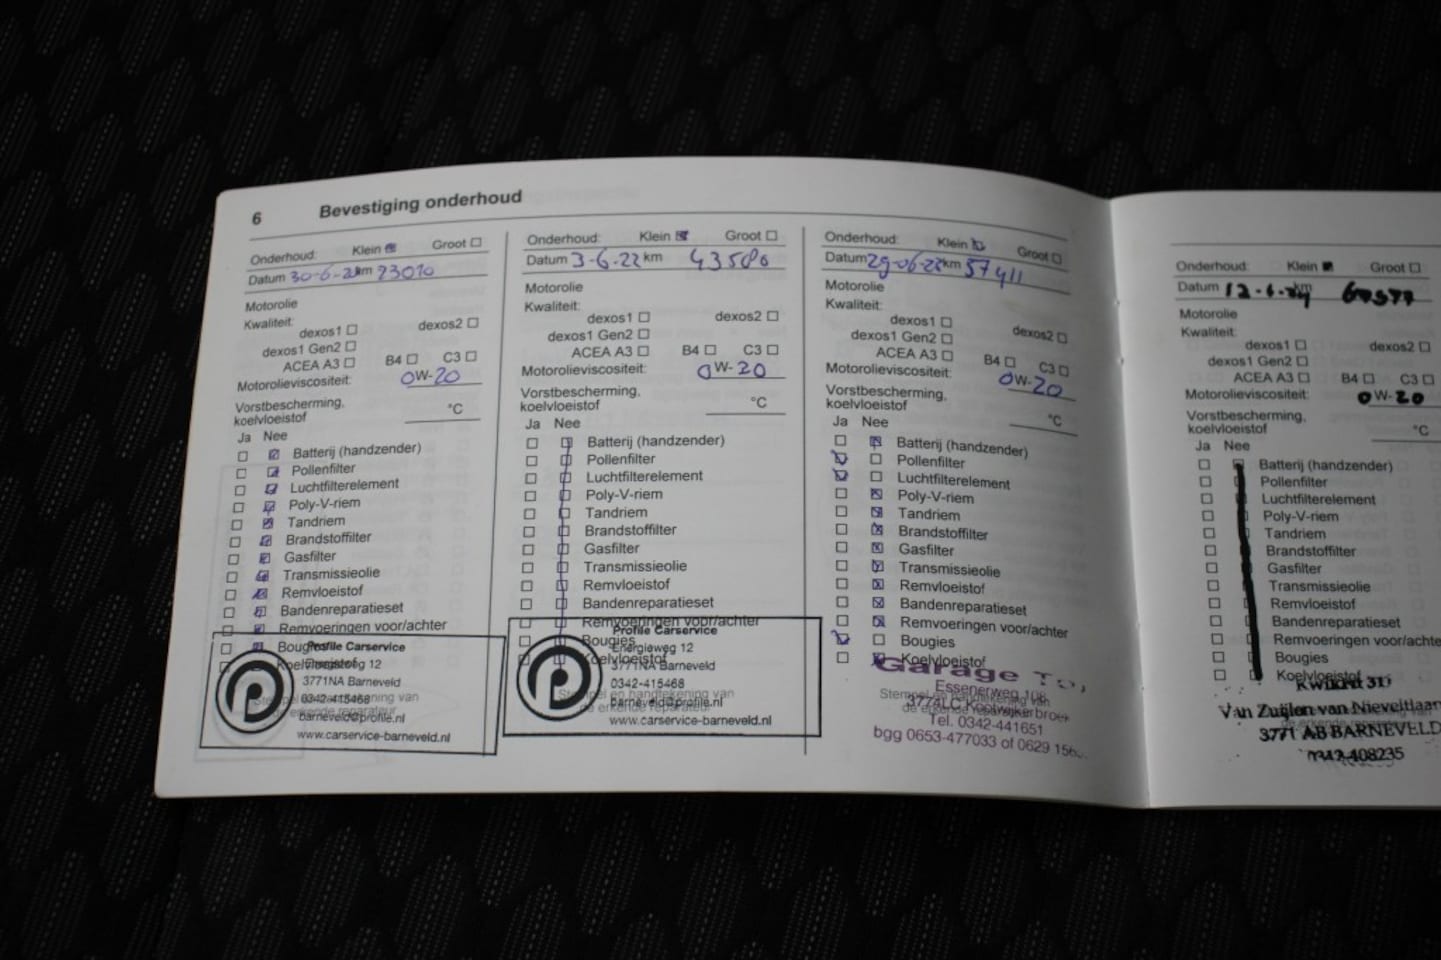 6 Bevestiging onderhoud
Onderhoud: Klein Groot
Datum 30-6-2 km 23010
Motorolie
Kwaliteit:
dexos1 dexos2
dexos1 Gen2
ACEA A3 B4 C3
Motorolieviscositeit: 0W-20
Vorstbescherming,
koelvloeistof °C
Ja Nee
Batterij (handzender)
Pollenfilter
Luchtfilterelement
Poly-V-riem
Tandriem
Brandstoffilter
Gasfilter
Transmissieolie
Remvloeistof
Bandenreparatieset
Remvoeringen voor/achter
Bougies
Koelvloeistof
Stempel en handtekening van
de erkende reparateur
Profile Carservice
Energieweg 12
3771NA Barneveld
0342-415468
barneveld@profile.nl
www.carservice-barneveld.nl
Onderhoud: Klein Groot
Datum 3-6-22 km 43580
Motorolie
Kwaliteit:
dexos1 dexos2
dexos1 Gen2
ACEA A3 B4 C3
Motorolieviscositeit: 0W-20
Vorstbescherming,
koelvloeistof °C
Ja Nee
Batterij (handzender)
Pollenfilter
Luchtfilterelement
Poly-V-riem
Tandriem
Brandstoffilter
Gasfilter
Transmissieolie
Remvloeistof
Bandenreparatieset
Remvoeringen voor/achter
Bougies
Koelvloeistof
Stempel en handtekening van
de erkende reparateur
Profile Carservice
Energieweg 12
3771NA Barneveld
0342-415468
barneveld@profile.nl
www.carservice-barneveld.nl
Onderhoud: Klein Groot
Datum 29-06-2 km 57411
Motorolie
Kwaliteit:
dexos1 dexos2
dexos1 Gen2
ACEA A3 B4 C3
Motorolieviscositeit: 0W-20
Vorstbescherming,
koelvloeistof °C
Ja Nee
Batterij (handzender)
Pollenfilter
Luchtfilterelement
Poly-V-riem
Tandriem
Brandstoffilter
Gasfilter
Transmissieolie
Remvloeistof
Bandenreparatieset
Remvoeringen voor/achter
Bougies
Koelvloeistof
Stempel en handtekening van
de erkende reparateur
Garage
Essenerweg 108
3774LC Kootwijkerbroek
Tel. 0342-441651
bgg 0653-477033 of 0629
Onderhoud: Klein Groot
Datum km
Motorolie
Kwaliteit:
dexos1 dexos2
dexos1 Gen2
ACEA A3 B4 C3
Motorolieviscositeit: 0W-20
Vorstbescherming,
koelvloeistof °C
Ja Nee
Batterij (handzender)
Pollenfilter
Luchtfilterelement
Poly-V-riem
Tandriem
Brandstoffilter
Gasfilter
Transmissieolie
Remvloeistof
Bandenreparatieset
Remvoeringen voor/achte
Bougies
Koelvloeistof
Van Zuijlen van Nieveltlaan
3771 AB BARNEVELD
0342-408235